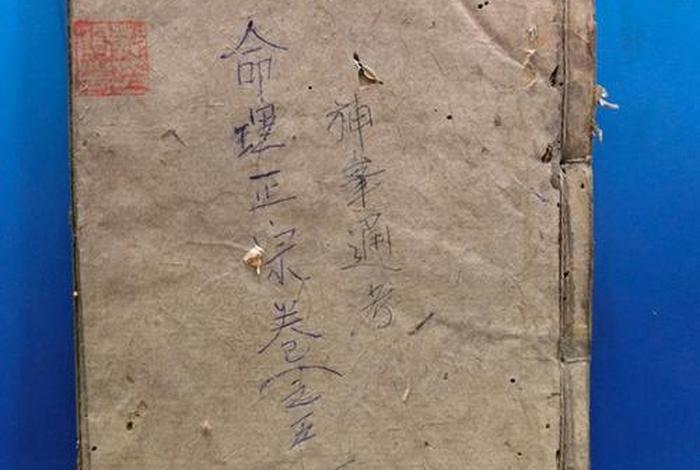 神峯通考
命理正宗卷五